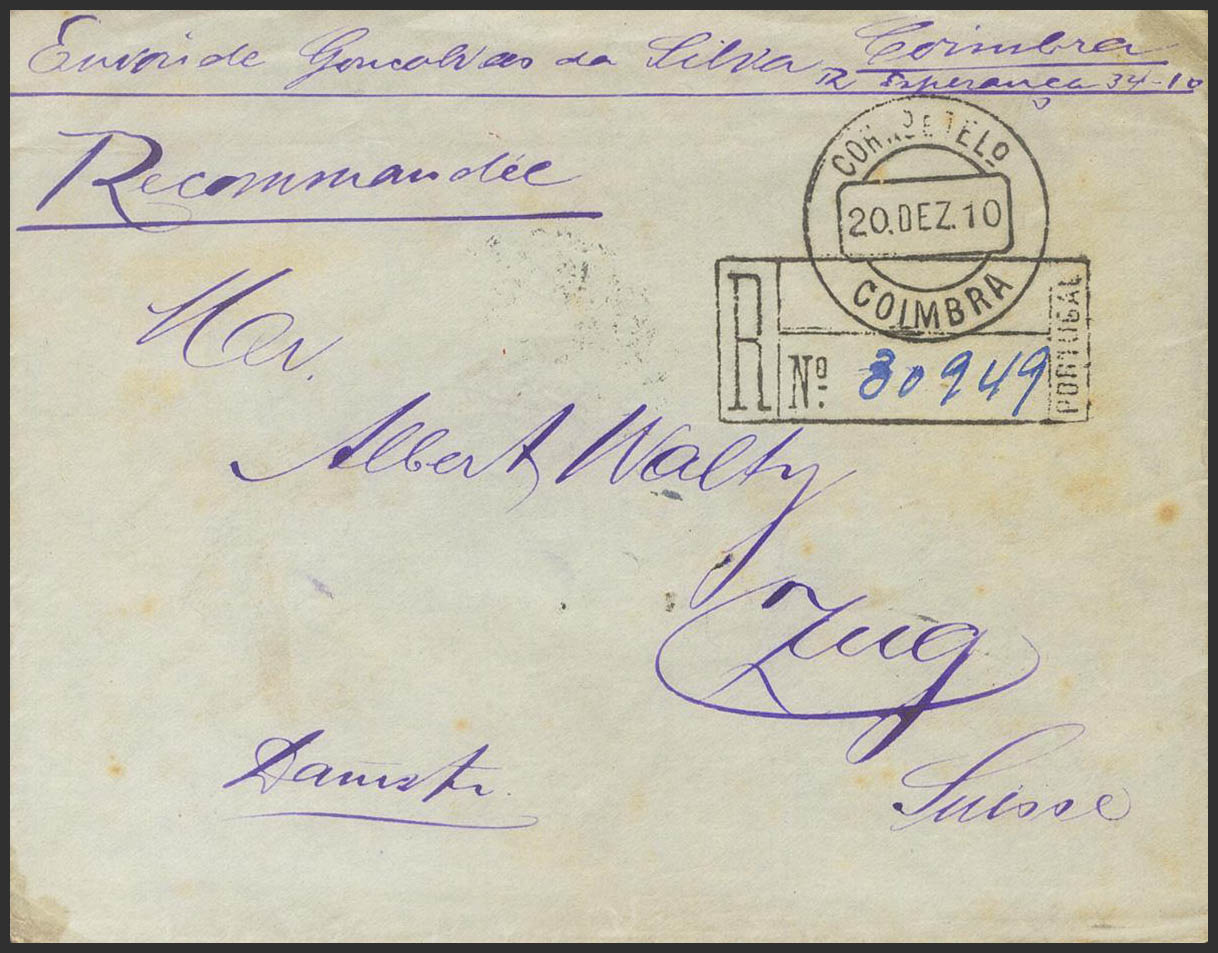 Envoi de Goncalves da Silva Coimbra
R Esperança 34-1º
Recommandée
CORR. E TELº
20.DEZ.10
COIMBRA
R
Nº 30949
PORTUGAL
Her.
Albert Walty
Zug
Damstr.
Suisse